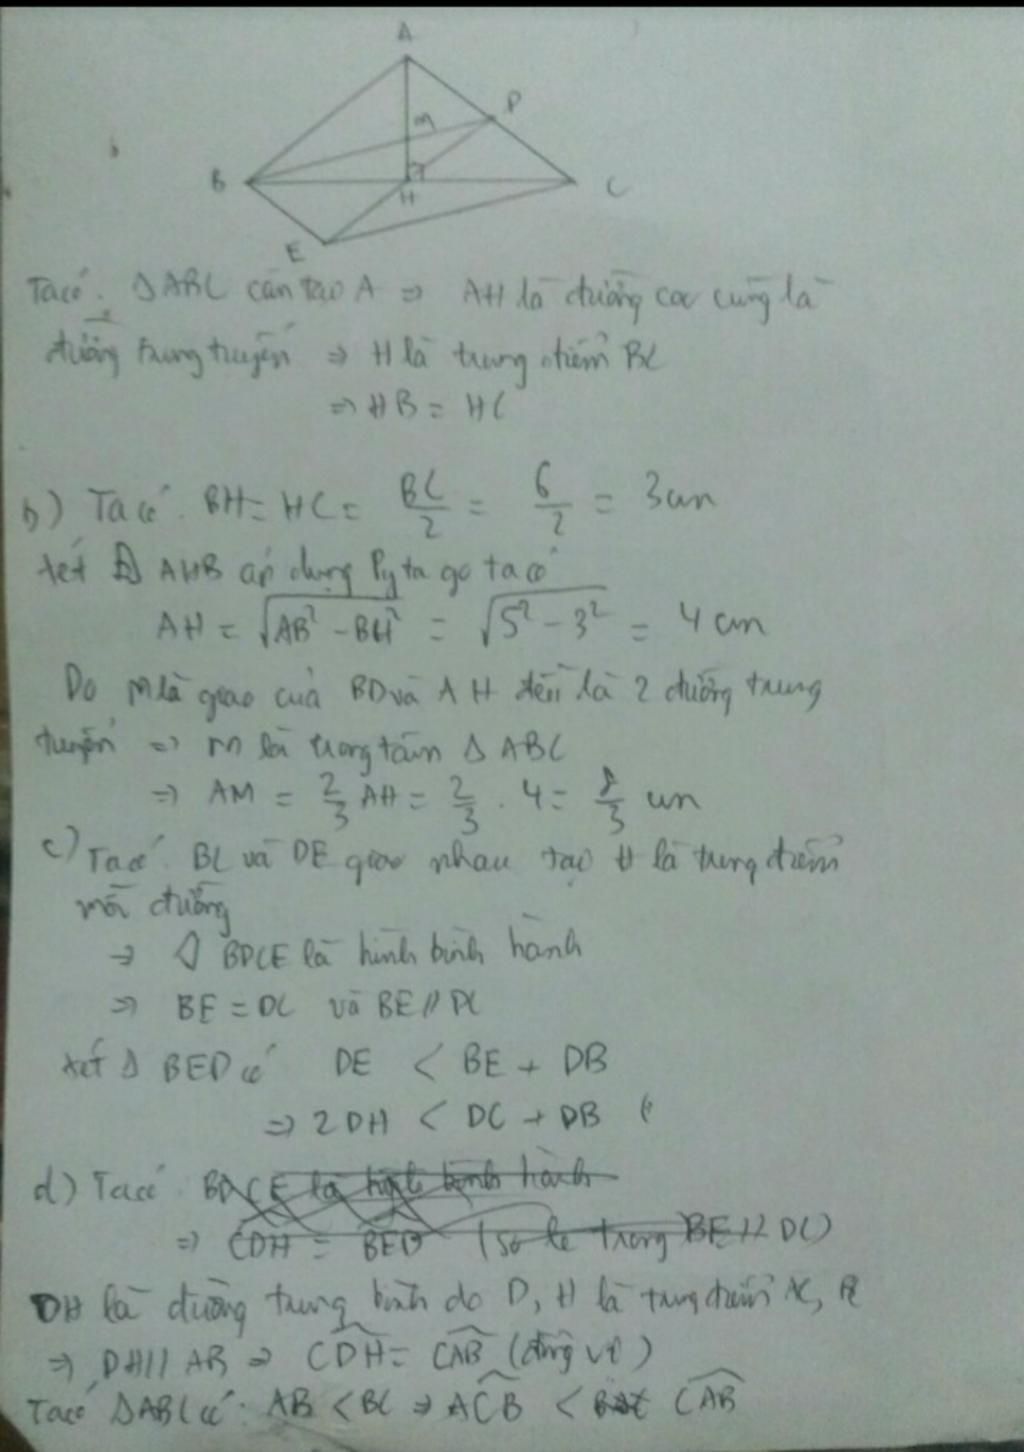 A
D
M
B
H
C
E
Ta có. ΔABC cân tạo A ⇒ AH là đường cao cũng là
đường trung tuyến ⇒ H là trung điểm BC
⇒ HB = HC
b) Ta có. BH = HC = BC/2 = 6/2 = 3cm
xét Δ AHB áp dụng Pytago ta có
AH = √(AB² - BH²) = √(5² - 3²) = 4 cm
Do M là giao của BD và AH đều là 2 đường trung
tuyến ⇒ M là trọng tâm Δ ABC
⇒ AM = 2/3 AH = 2/3 . 4 = 8/3 cm
c) Ta có. BC và DE giao nhau tạo H là trung điểm
mỗi đường
⇒ ◊ BDCE là hình bình hành
⇒ BE = DC và BE // DC
xét Δ BED có DE < BE + DB
⇒ 2DH < DC + DB
d) Ta có. BDCE là hình bình hành
⇒ CDH = BED (so le trong BE // DC)
DH là đường trung bình do D, H là trung điểm AC, BC
⇒ DH // AB ⇒ CDH = CAB (đồng vị)
Ta có ΔABC có: AB < BC ⇒ ACB < CAB